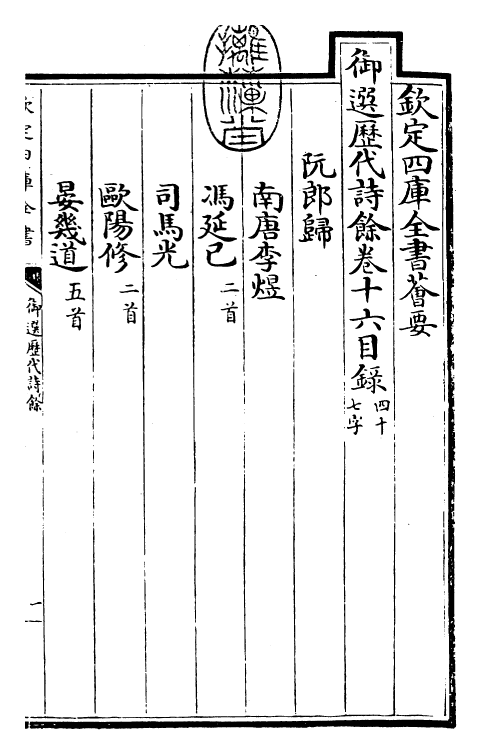 欽定四庫全書薈要
御選歷代詩餘卷十六目錄 四十七字
阮郎歸
南唐李煜
馮延巳 二首
司馬光
歐陽修 二首
晏幾道 五首
欽定四庫全書
御選歷代詩餘
一